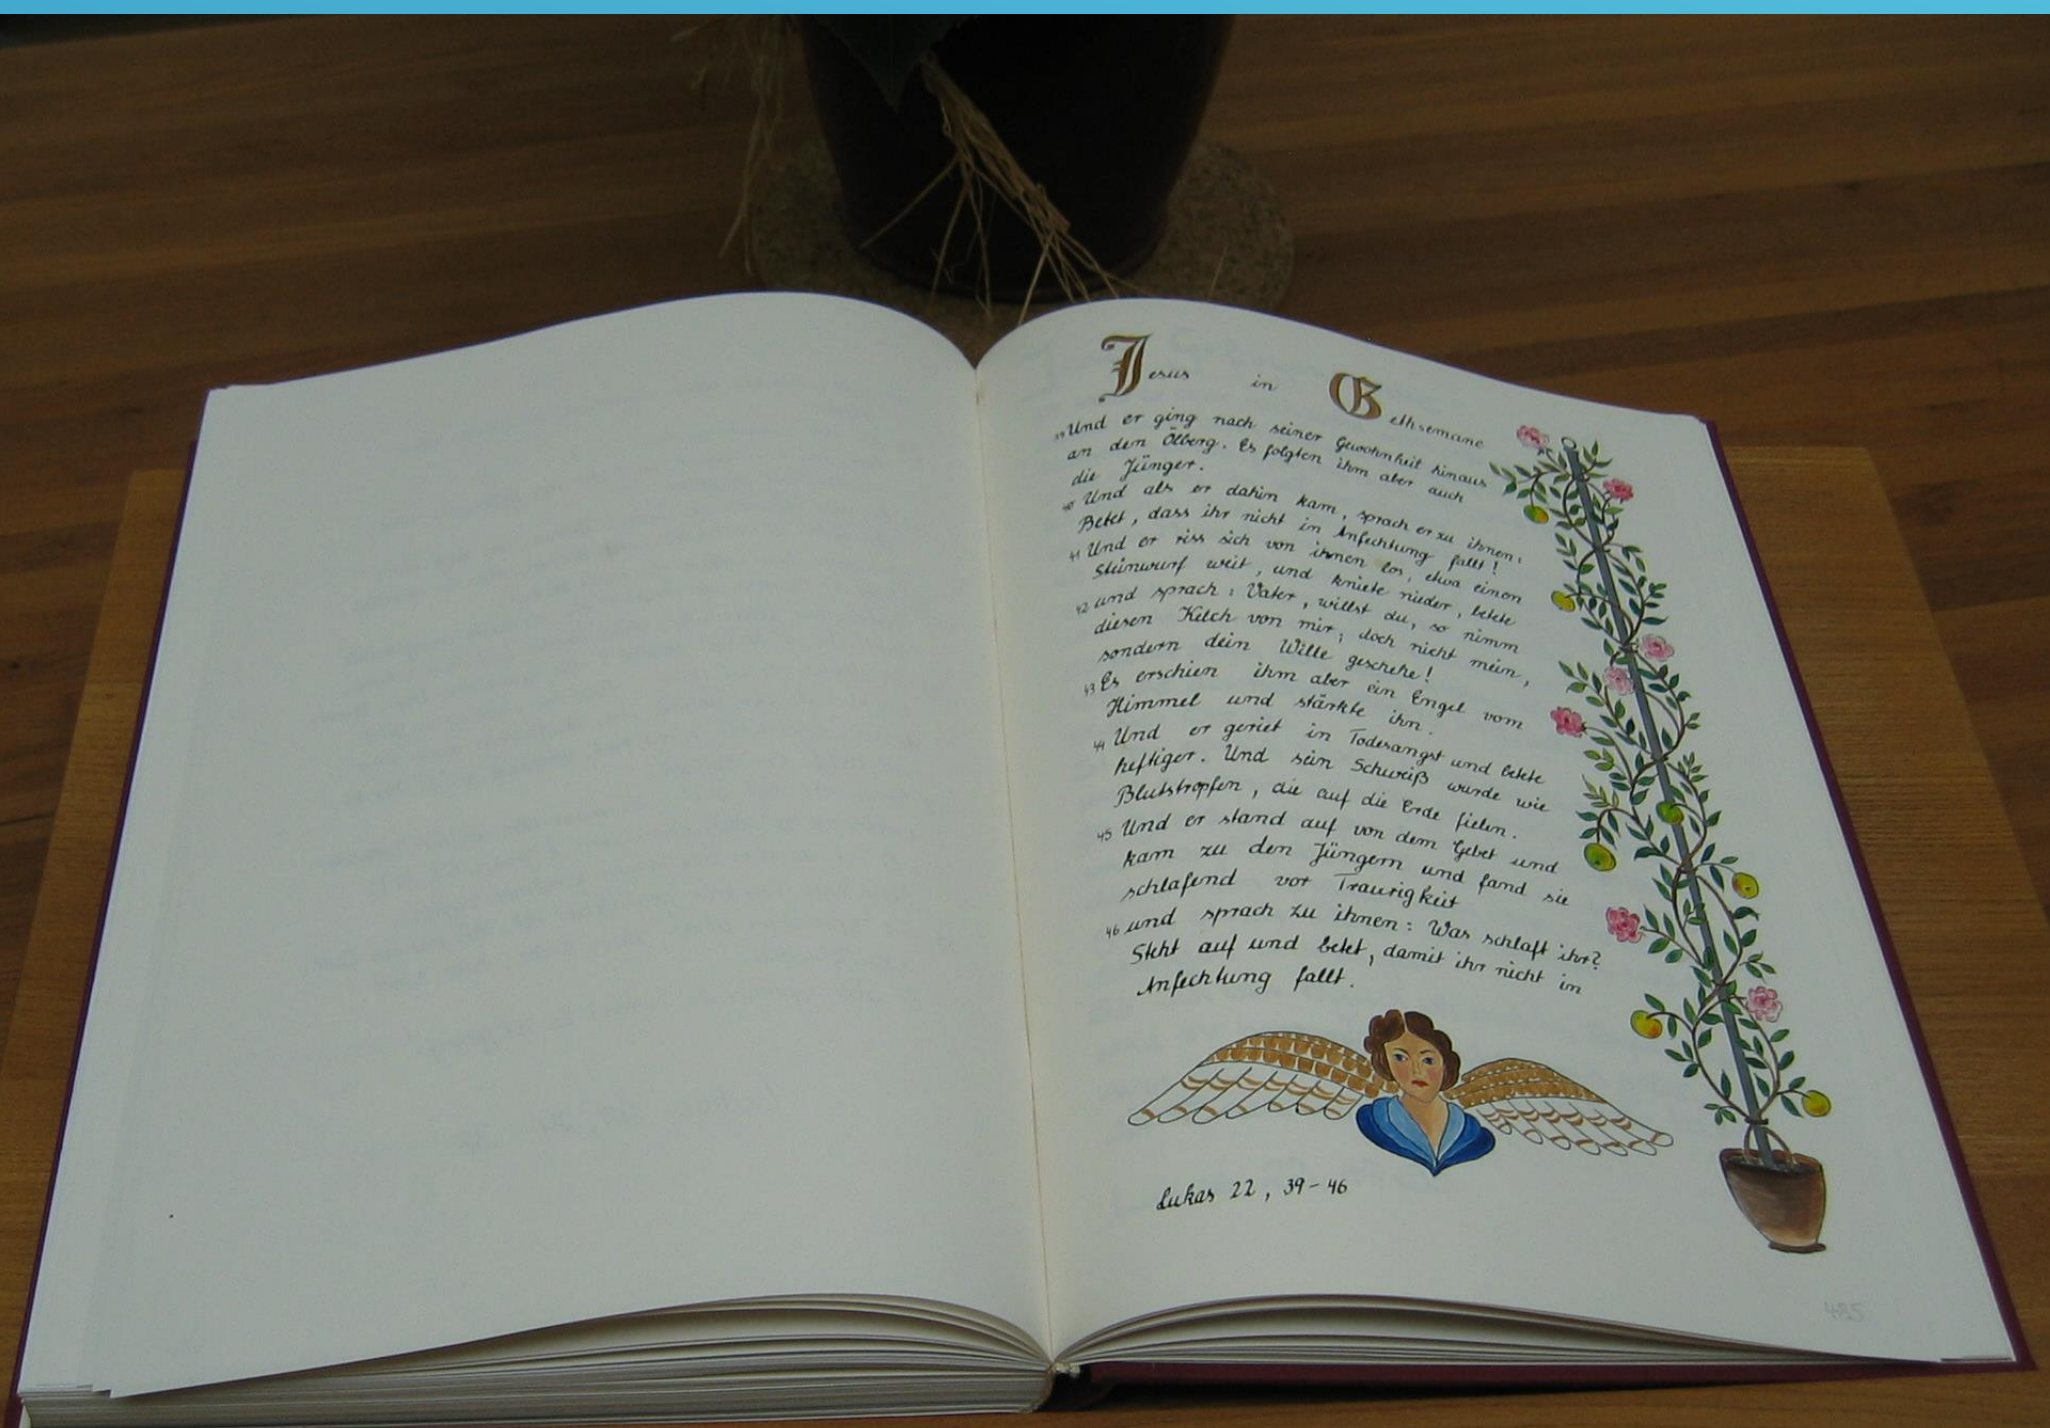 Jesus in Gethsemane
39 Und er ging nach seiner Gewohnheit hinaus
an den Ölberg. Es folgten ihm aber auch
die Jünger.
40 Und als er dahin kam, sprach er zu ihnen:
Betet, dass ihr nicht in Anfechtung fallt!
41 Und er riss sich von ihnen los, etwa einen
Steinwurf weit, und kniete nieder, betete
42 und sprach: Vater, willst du, so nimm
diesen Kelch von mir; doch nicht mein,
sondern dein Wille geschehe!
43 Es erschien ihm aber ein Engel vom
Himmel und stärkte ihn.
44 Und er geriet in Todesangst und betete
heftiger. Und sein Schweiß wurde wie
Blutstropfen, die auf die Erde fielen.
45 Und er stand auf von dem Gebet und
kam zu den Jüngern und fand sie
schlafend vor Traurigkeit
46 und sprach zu ihnen: Was schlaft ihr?
Steht auf und betet, damit ihr nicht in
Anfechtung fallt.
Lukas 22, 39-46
485